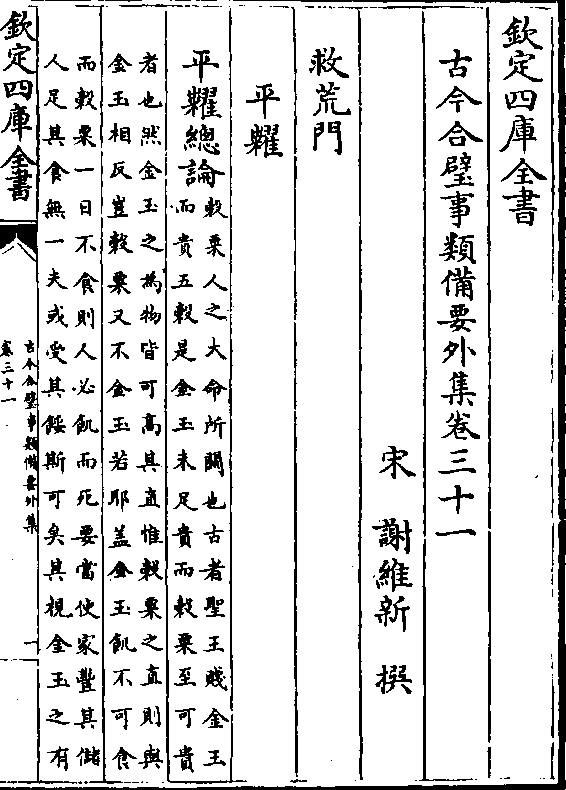 欽定四庫全書
古今合璧事類備要外集卷三十一
宋 謝維新 撰
救荒門
平糶
平糶總論
穀粟人之大命所關也古者聖王賤金玉
而貴五穀是金玉未足貴而穀粟至可貴
者也然金玉之為物皆可高其直惟穀粟之直則與
金玉相反豈穀粟又不金玉若耶盖金玉飢不可食
而穀粟一日不食則人必飢而死要當使家豐其儲
人足其食無一夫或受其餒斯可矣其視金玉之有
欽定四庫全書
古今合璧事類備要外集
卷三十一
一